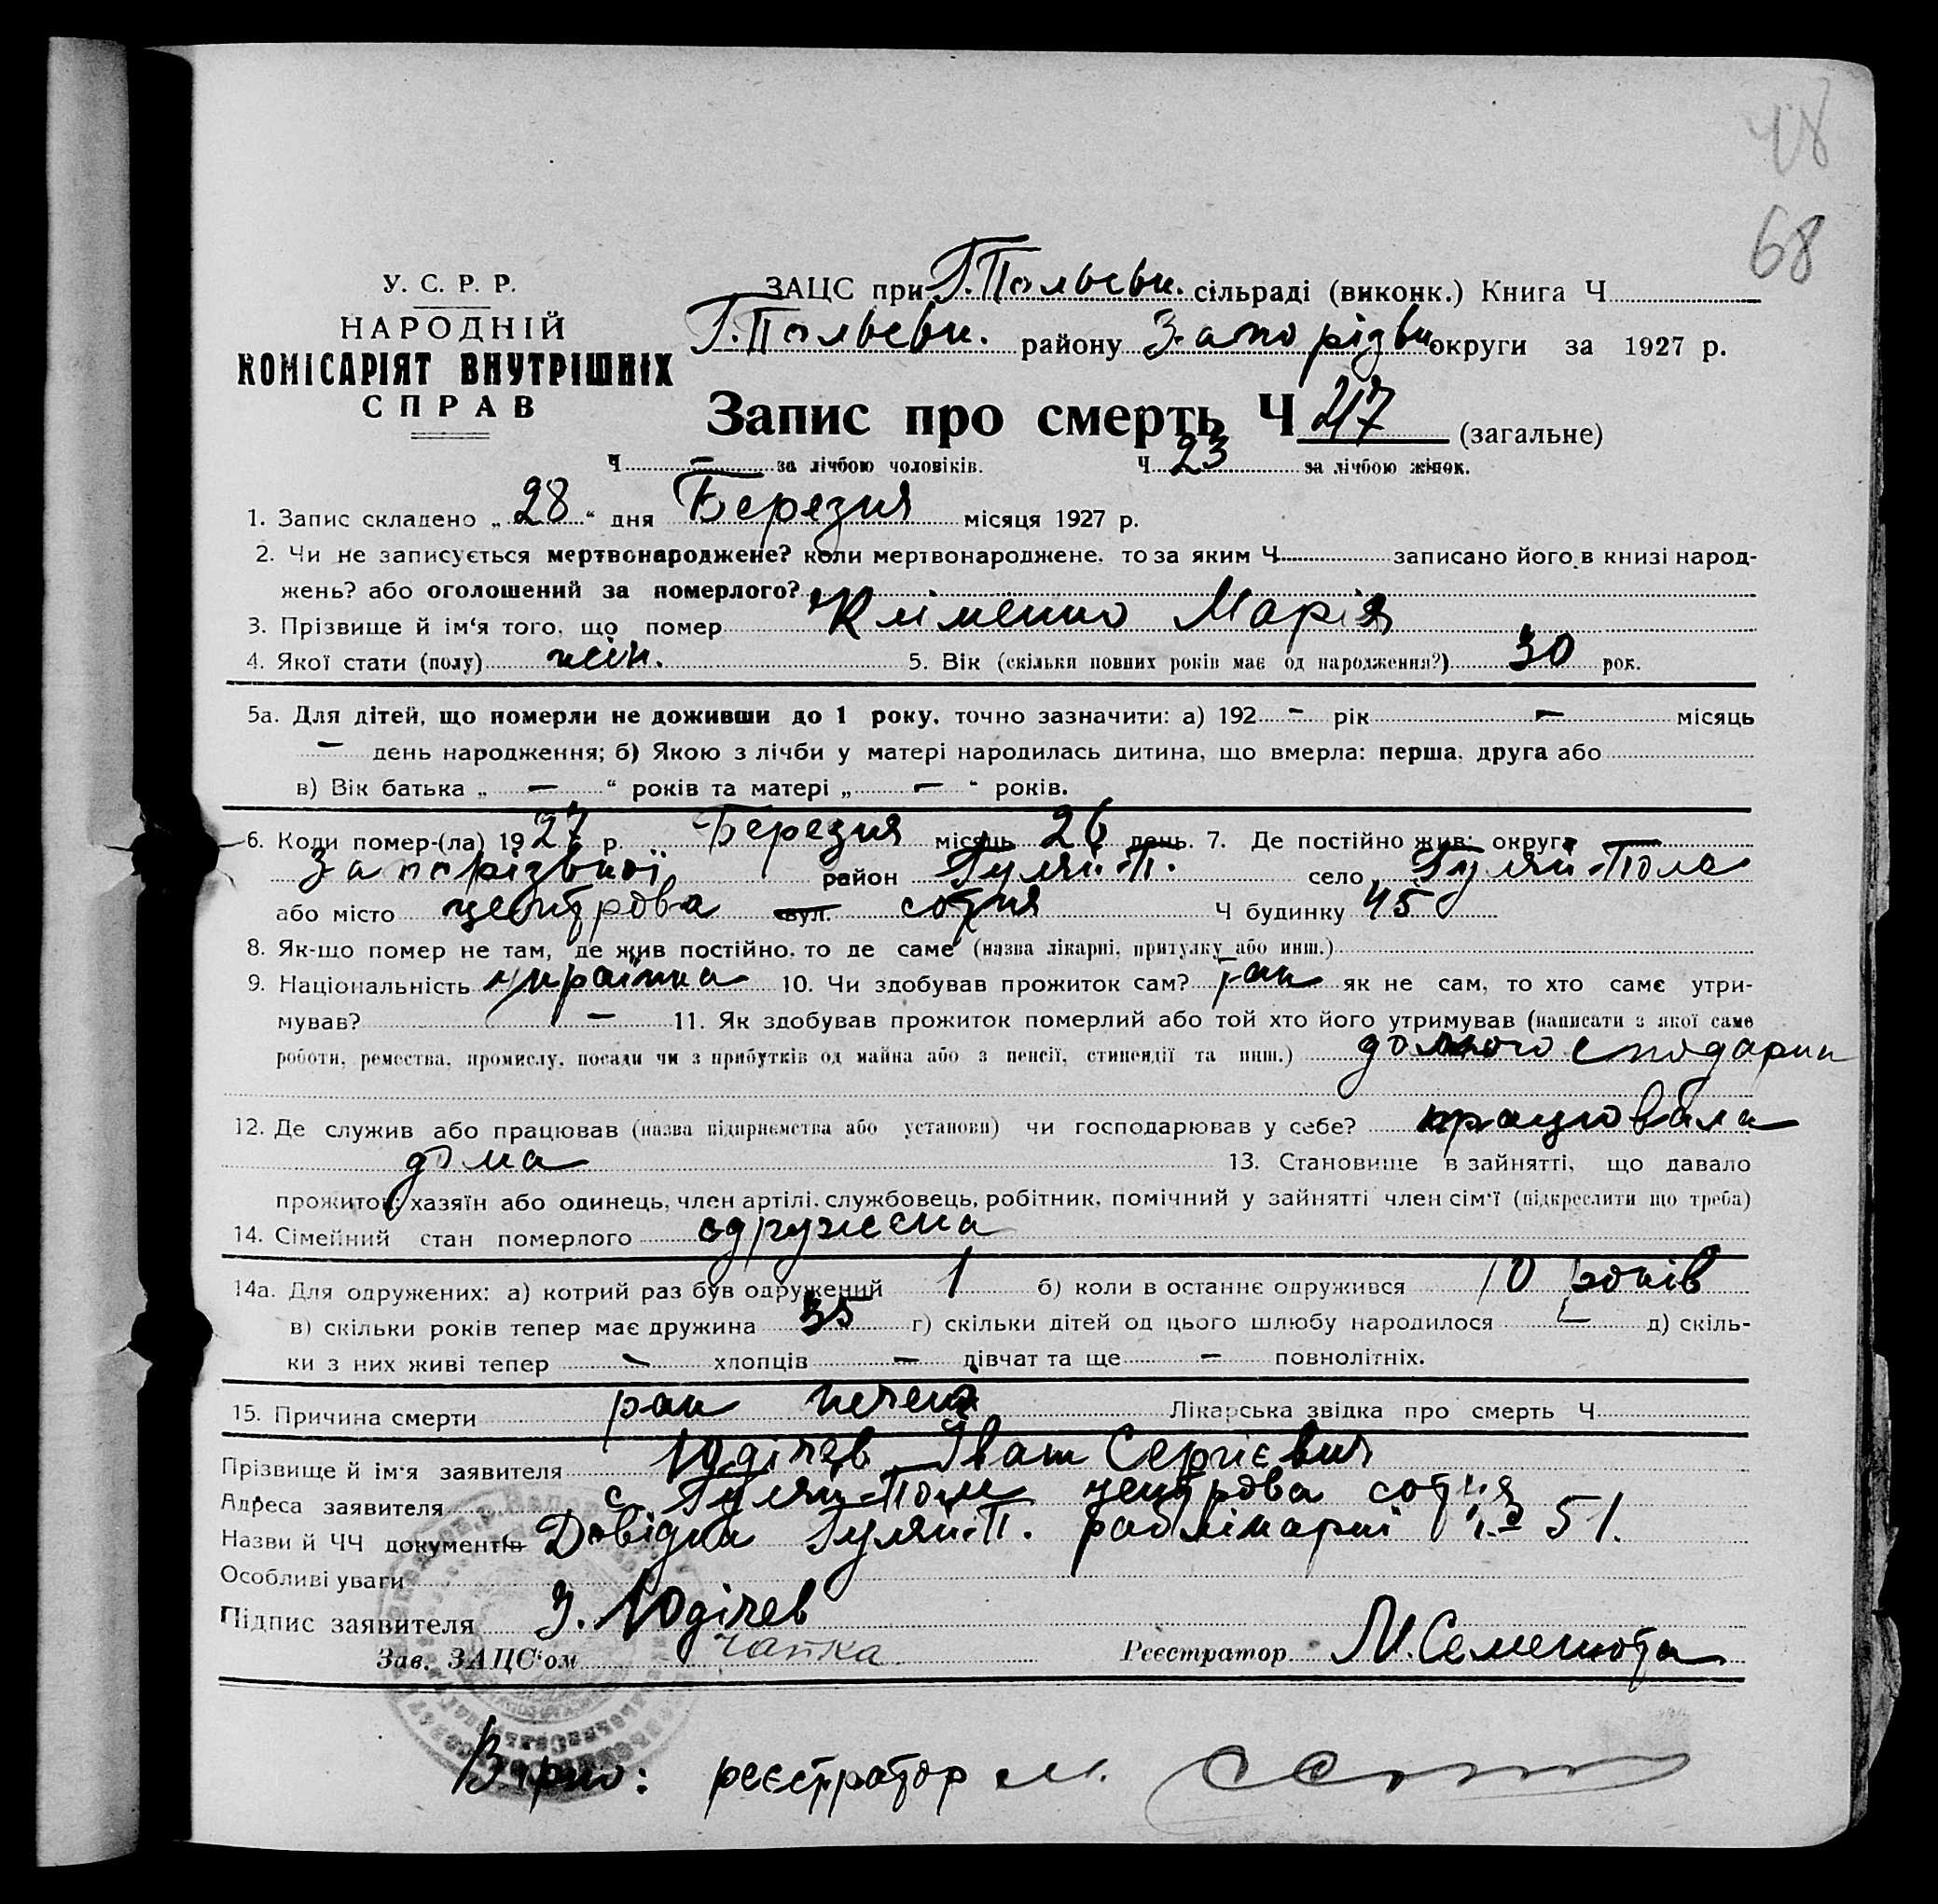 48
68
У. С. Р. Р.
НАРОДНІЙ
КОМІСАРІЯТ ВНУТРІШНІХ
СПРАВ
ЗАЦС при Г.Польськ. сільраді (виконк.) Книга Ч
Г.Польськ. району Запорізьк округи за 1927 р.
Запис про смерть Ч 47 (загальне)
Ч - за лічбою чоловіків. Ч 23 за лічбою жінок.
1. Запис складено „28“ дня Березня місяця 1927 р.
2. Чи не записується мертвонароджене? коли мертвонароджене, то за яким Ч записано його в книзі народ-
жень? або оголошений за померлого?
3. Прізвище й ім‘я того, що помер Кліменко Марія
4. Якої стати (полу) жін. 5. Вік (скільки повних років має од народження?) 30 рок.
5а. Для дітей, що померли не доживши до 1 року, точно зазначити: а) 192 - рік - місяць
- день народження; б) Якою з лічби у матері народилась дитина, що вмерла: перша, друга або
в) Вік батька „ - “ років та матері „ - “ років.
6. Коли помер-(ла) 1927 р. Березня місяць 26 день. 7. Де постійно жив: округа
Запорізької район Гуляй-П. село Гуляй-Поле
або місто центрова вул. сотня Ч будинку 45
8. Як-що помер не там, де жив постійно, то де саме (назва лікарні, притулку або инш.)
9. Національність українка 10. Чи здобував прожиток сам? так як не сам, то хто саме утри-
мував? - 11. Як здобував прожиток померлий або той хто його утримував (написати з якої саме
роботи, ремества, промислу, посади чи з прибутків од майна або з пенсії, стипендії та инш.)
12. Де служив або працював (назва підприємства або установи) чи господарював у себе? працювала
дома 13. Становище в зайнятті, що давало
прожиток: хазяїн або одинець, член артілі, службовець, робітник, помічний у зайнятті член сім‘ї (підкреслити що треба)
14. Сімейний стан померлого одружена
14а. Для одружених: а) котрий раз був одружений 1 б) коли в останнє одружився 10 років
в) скільки років тепер має дружина 35 г) скільки дітей од цього шлюбу народилося - д) скіль-
ки з них живі тепер - хлопців - дівчат та ще - повнолітніх.
15. Причина смерти рак печені Лікарська звідка про смерть Ч
Прізвище й ім‘я заявителя Юдічев Іван Сергієвич
Адреса заявителя с. Гуляй-Поле центрова сотня
Назви й ЧЧ документів Довідка Гуляй-П. райлікарні 51.
Особливі уваги
Підпис заявителя Юдічев
Зав. ЗАЦС‘ом Чапка Реєстратор М. Семенюта
Вірно: реєстратор М.